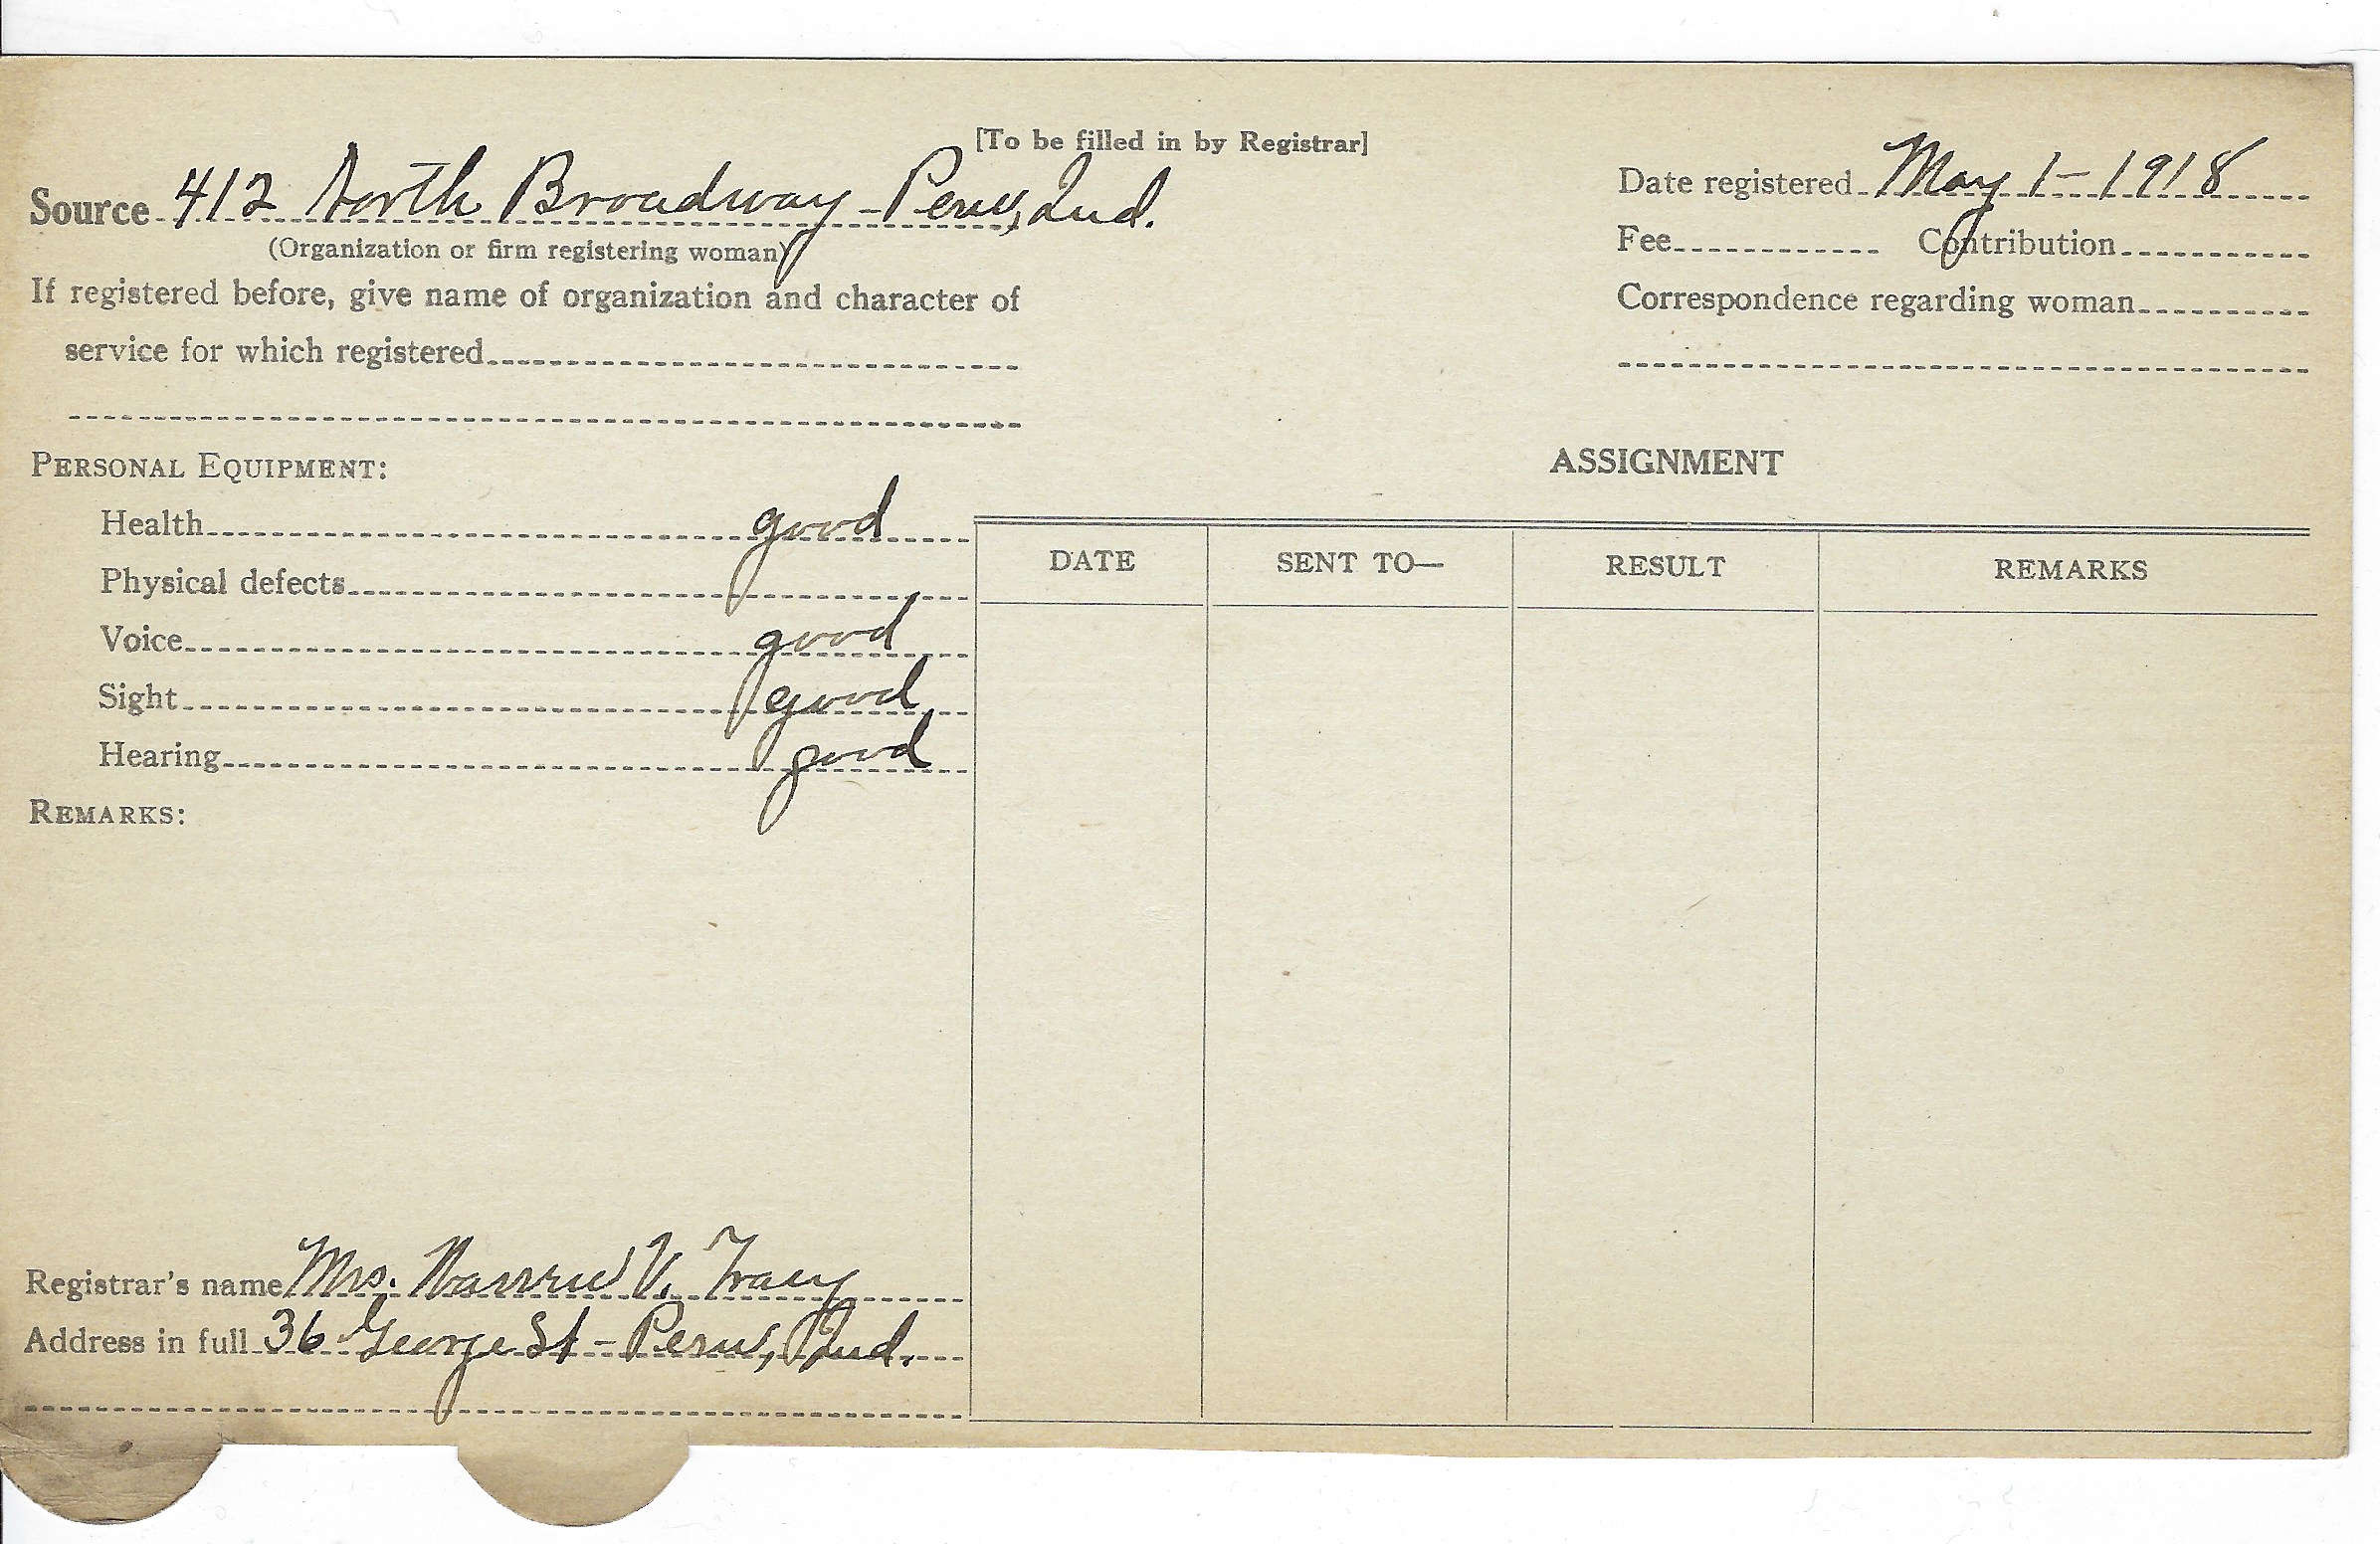 [To be filled in by Registrar]
Source 412 North Broadway - Peru, Ind.
(Organization or firm registering woman)
If registered before, give name of organization and character of
service for which registered
Date registered May 1 - 1918
Fee Contribution
Correspondence regarding woman
PERSONAL EQUIPMENT:
Health good
Physical defects
Voice good
Sight good
Hearing good
REMARKS:
Registrar's name Mrs. V. Tracy
Address in full 36 George St - Peru, Ind.
ASSIGNMENT
DATE SENT TO— RESULT REMARKS